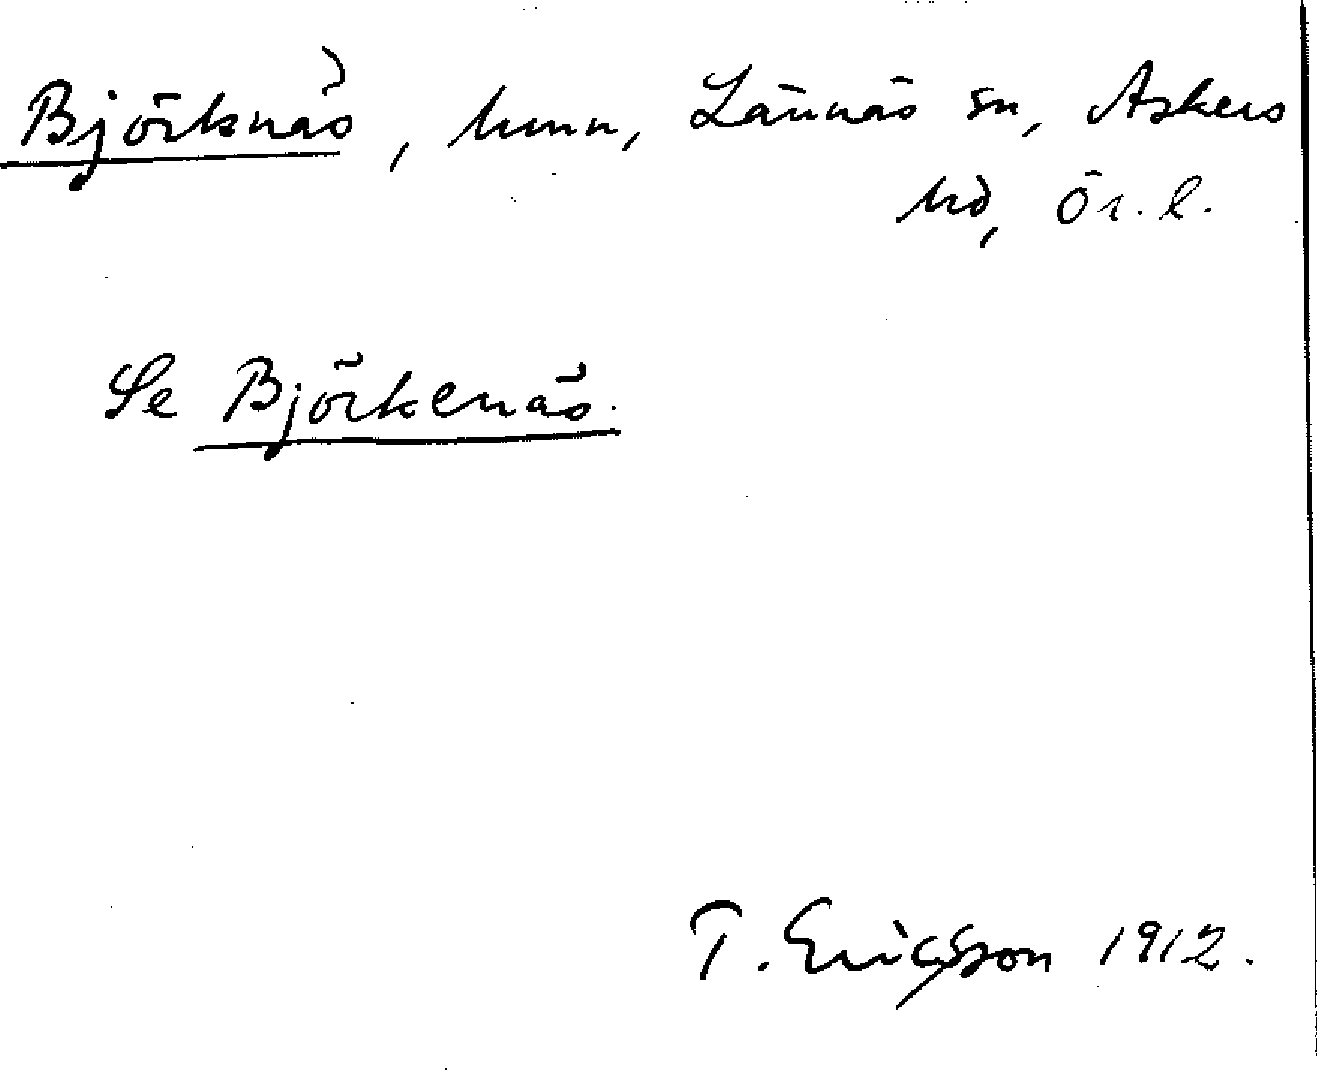 Björknäs, hmn, Lännäs sn, Askers
hd, Ör. l.
Se Björkenäs.
T. Ericsson 1912.